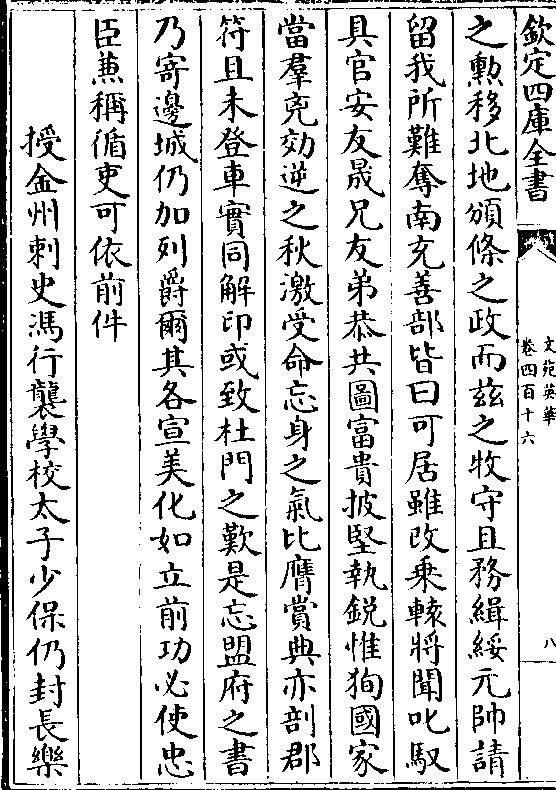 欽定四庫全書
文苑英華
卷四百十六
八
之勲移北地頒條之政而兹之牧守且務緝綏元帥請
留我所難奪南充善部皆曰可居雖改乗轅將聞叱馭
具官安友晟兄友弟恭共圖富貴披堅執鋭惟狥國家
當羣兇効逆之秋激受命忘身之氣比膺賞典亦剖郡
符且未登車實同解印或致杜門之歎是忘盟府之書
乃寄邊城仍加列爵爾其各宣美化如立前功必使忠
臣兼稱循吏可依前件
授金州刺史馮行襲學校太子少保仍封長樂